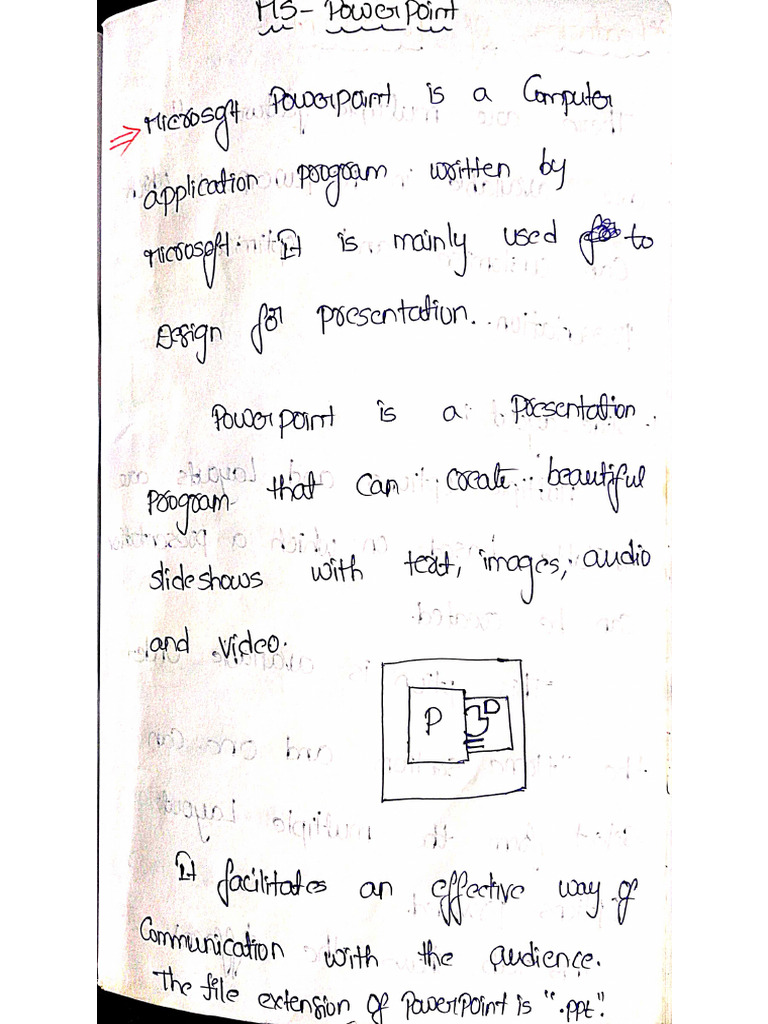 MS-PowerPoint
Microsoft Powerpoint is a Computer
application program written by
Microsoft. It is mainly used to
Design for presentation.
Powerpoint is a Presentation
program that can create beautiful
slideshows with text, images, audio
and video.
P
It facilitates an effective way of
Communication with the audience.
The file extension of PowerPoint is ".ppt".